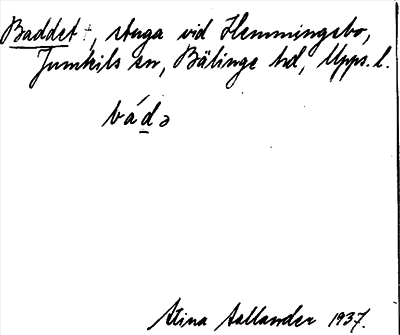 Baddet †, stuga vid Hemmingsbo,
Jumkils sn, Bälinge hd, Upps. l.
bád̲ə
Stina Aallander 1937.